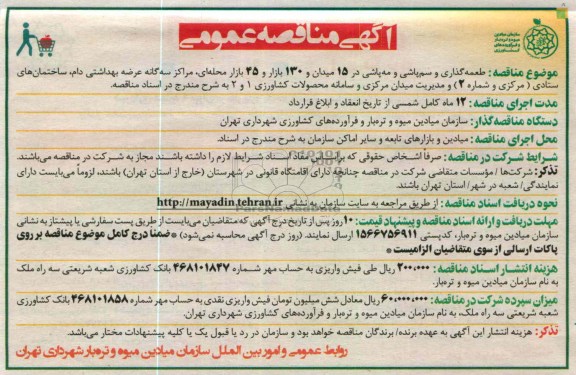 آگهی مناقصه عمومی
سازمان میادین
میوه و تره‌بار
و فرآورده‌های
کشاورزی
موضوع مناقصه: طعمه‌گذاری و سم‌پاشی و مه‌پاشی در ۱۵ میدان و ۱۳۰ بازار و ۴۵ بازار محله‌ای، مراکز سه‌گانه عرضه بهداشتی دام، ساختمان‌های
ستادی (مرکزی و شماره ۲) و مدیریت میدان مرکزی و سامانه محصولات کشاورزی ۱ و ۲ به شرح مندرج در اسناد مناقصه.
مدت اجرای مناقصه: ۱۲ ماه کامل شمسی از تاریخ انعقاد و ابلاغ قرارداد
دستگاه مناقصه‌گذار: سازمان میادین میوه و تره‌بار و فرآورده‌های کشاورزی شهرداری تهران
محل اجرای مناقصه: میادین و بازارهای تابعه و سایر اماکن سازمان به شرح مندرج در اسناد.
شرایط شرکت در مناقصه: صرفاً اشخاص حقوقی که برابر مفاد اسناد شرایط لازم را داشته باشند مجاز به شرکت در مناقصه می‌باشند.
تذکر: شرکت‌ها / مؤسسات متقاضی شرکت در مناقصه چنانچه دارای اقامتگاه قانونی در شهرستان (خارج از استان تهران) باشند، لزوماً می‌بایست دارای
نمایندگی/ شعبه در شهر/ استان تهران باشند.
نحوه دریافت اسناد مناقصه: از طریق مراجعه به سایت سازمان به نشانی http://mayadin.tehran.ir
مهلت دریافت و ارائه اسناد مناقصه و پیشنهاد قیمت: ۱۰ روز پس از تاریخ درج آگهی که متقاضیان می‌بایست از طریق پست سفارشی یا پیشتاز به نشانی
سازمان میادین میوه و تره‌بار، کدپستی ۱۵۶۶۷۵۶۹۱۱ ارسال نمایند. (روز درج آگهی محاسبه نمی‌شود) * ضمناً درج کامل موضوع مناقصه بر روی
پاکات ارسالی از سوی متقاضیان الزامیست *
هزینه انتشار اسناد مناقصه: ۲۰۰٫۰۰۰ ریال طی فیش واریزی به حساب مهر شماره ۴۶۸۱۰۱۸۴۷ بانک کشاورزی شعبه شریعتی سه راه ملک
به نام سازمان میادین میوه و تره‌بار.
میزان سپرده شرکت در مناقصه: ۶۰٫۰۰۰٫۰۰۰ ریال معادل شش میلیون تومان فیش واریزی نقدی به حساب مهر شماره ۴۶۸۱۰۱۸۵۸ بانک کشاورزی
شعبه شریعتی سه راه ملک، به نام سازمان میادین میوه و تره‌بار و فرآورده‌های کشاورزی شهرداری تهران.
تذکر: هزینه انتشار این آگهی به عهده برنده/ برندگان مناقصه خواهد بود و سازمان در رد یا قبول یک یا کلیه پیشنهادات مختار می‌باشد.
روابط عمومی و امور بین الملل سازمان میادین میوه و تره‌بار شهرداری تهران